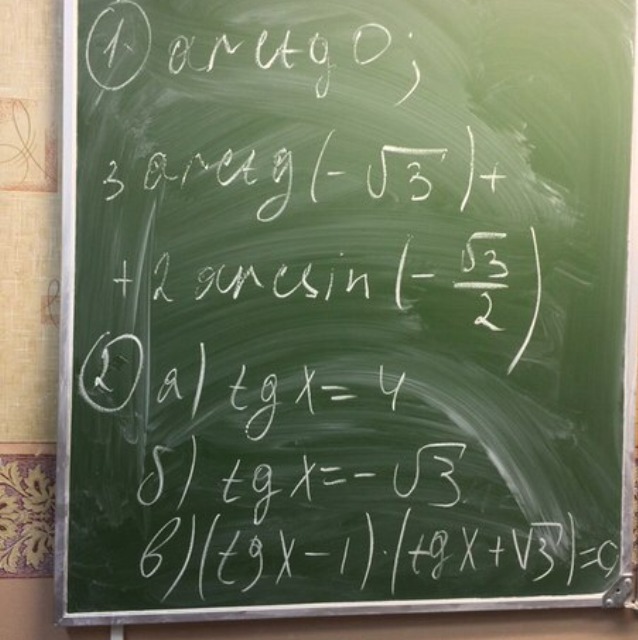 ① arctg 0;
3 arctg (-√3) +
+ 2 arcsin (-√3/2)
② а) tg x = 4
б) tg x = -√3
в) (tg x - 1) · (tg x + √3) = 0